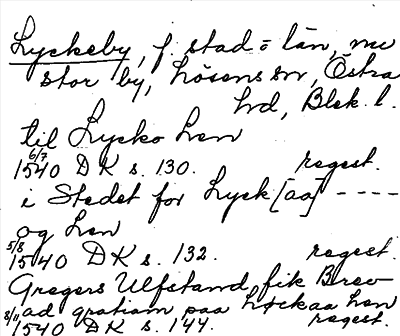 Lyckeby, f. stad o län, nu
stor by, Lösens sn, Östra
hd, Blek. l.
til Lycko Len
6/7 1540 DK s. 130. regest.
i Stedet for Lyck[aa] ----
og Len
5/8 1540 DK s. 132. regest.
Gregers Ulfstand fik Brev
ad gratiam paa Løckaa Len
8/11 1540 DK s. 144. regest.